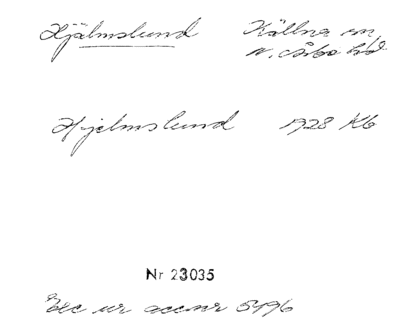 Hjälmslund Källna sn,
N. Åsbo hd.
Hjelmslund 1928 Kb
Nr 23035
Exc ur accnr 5496